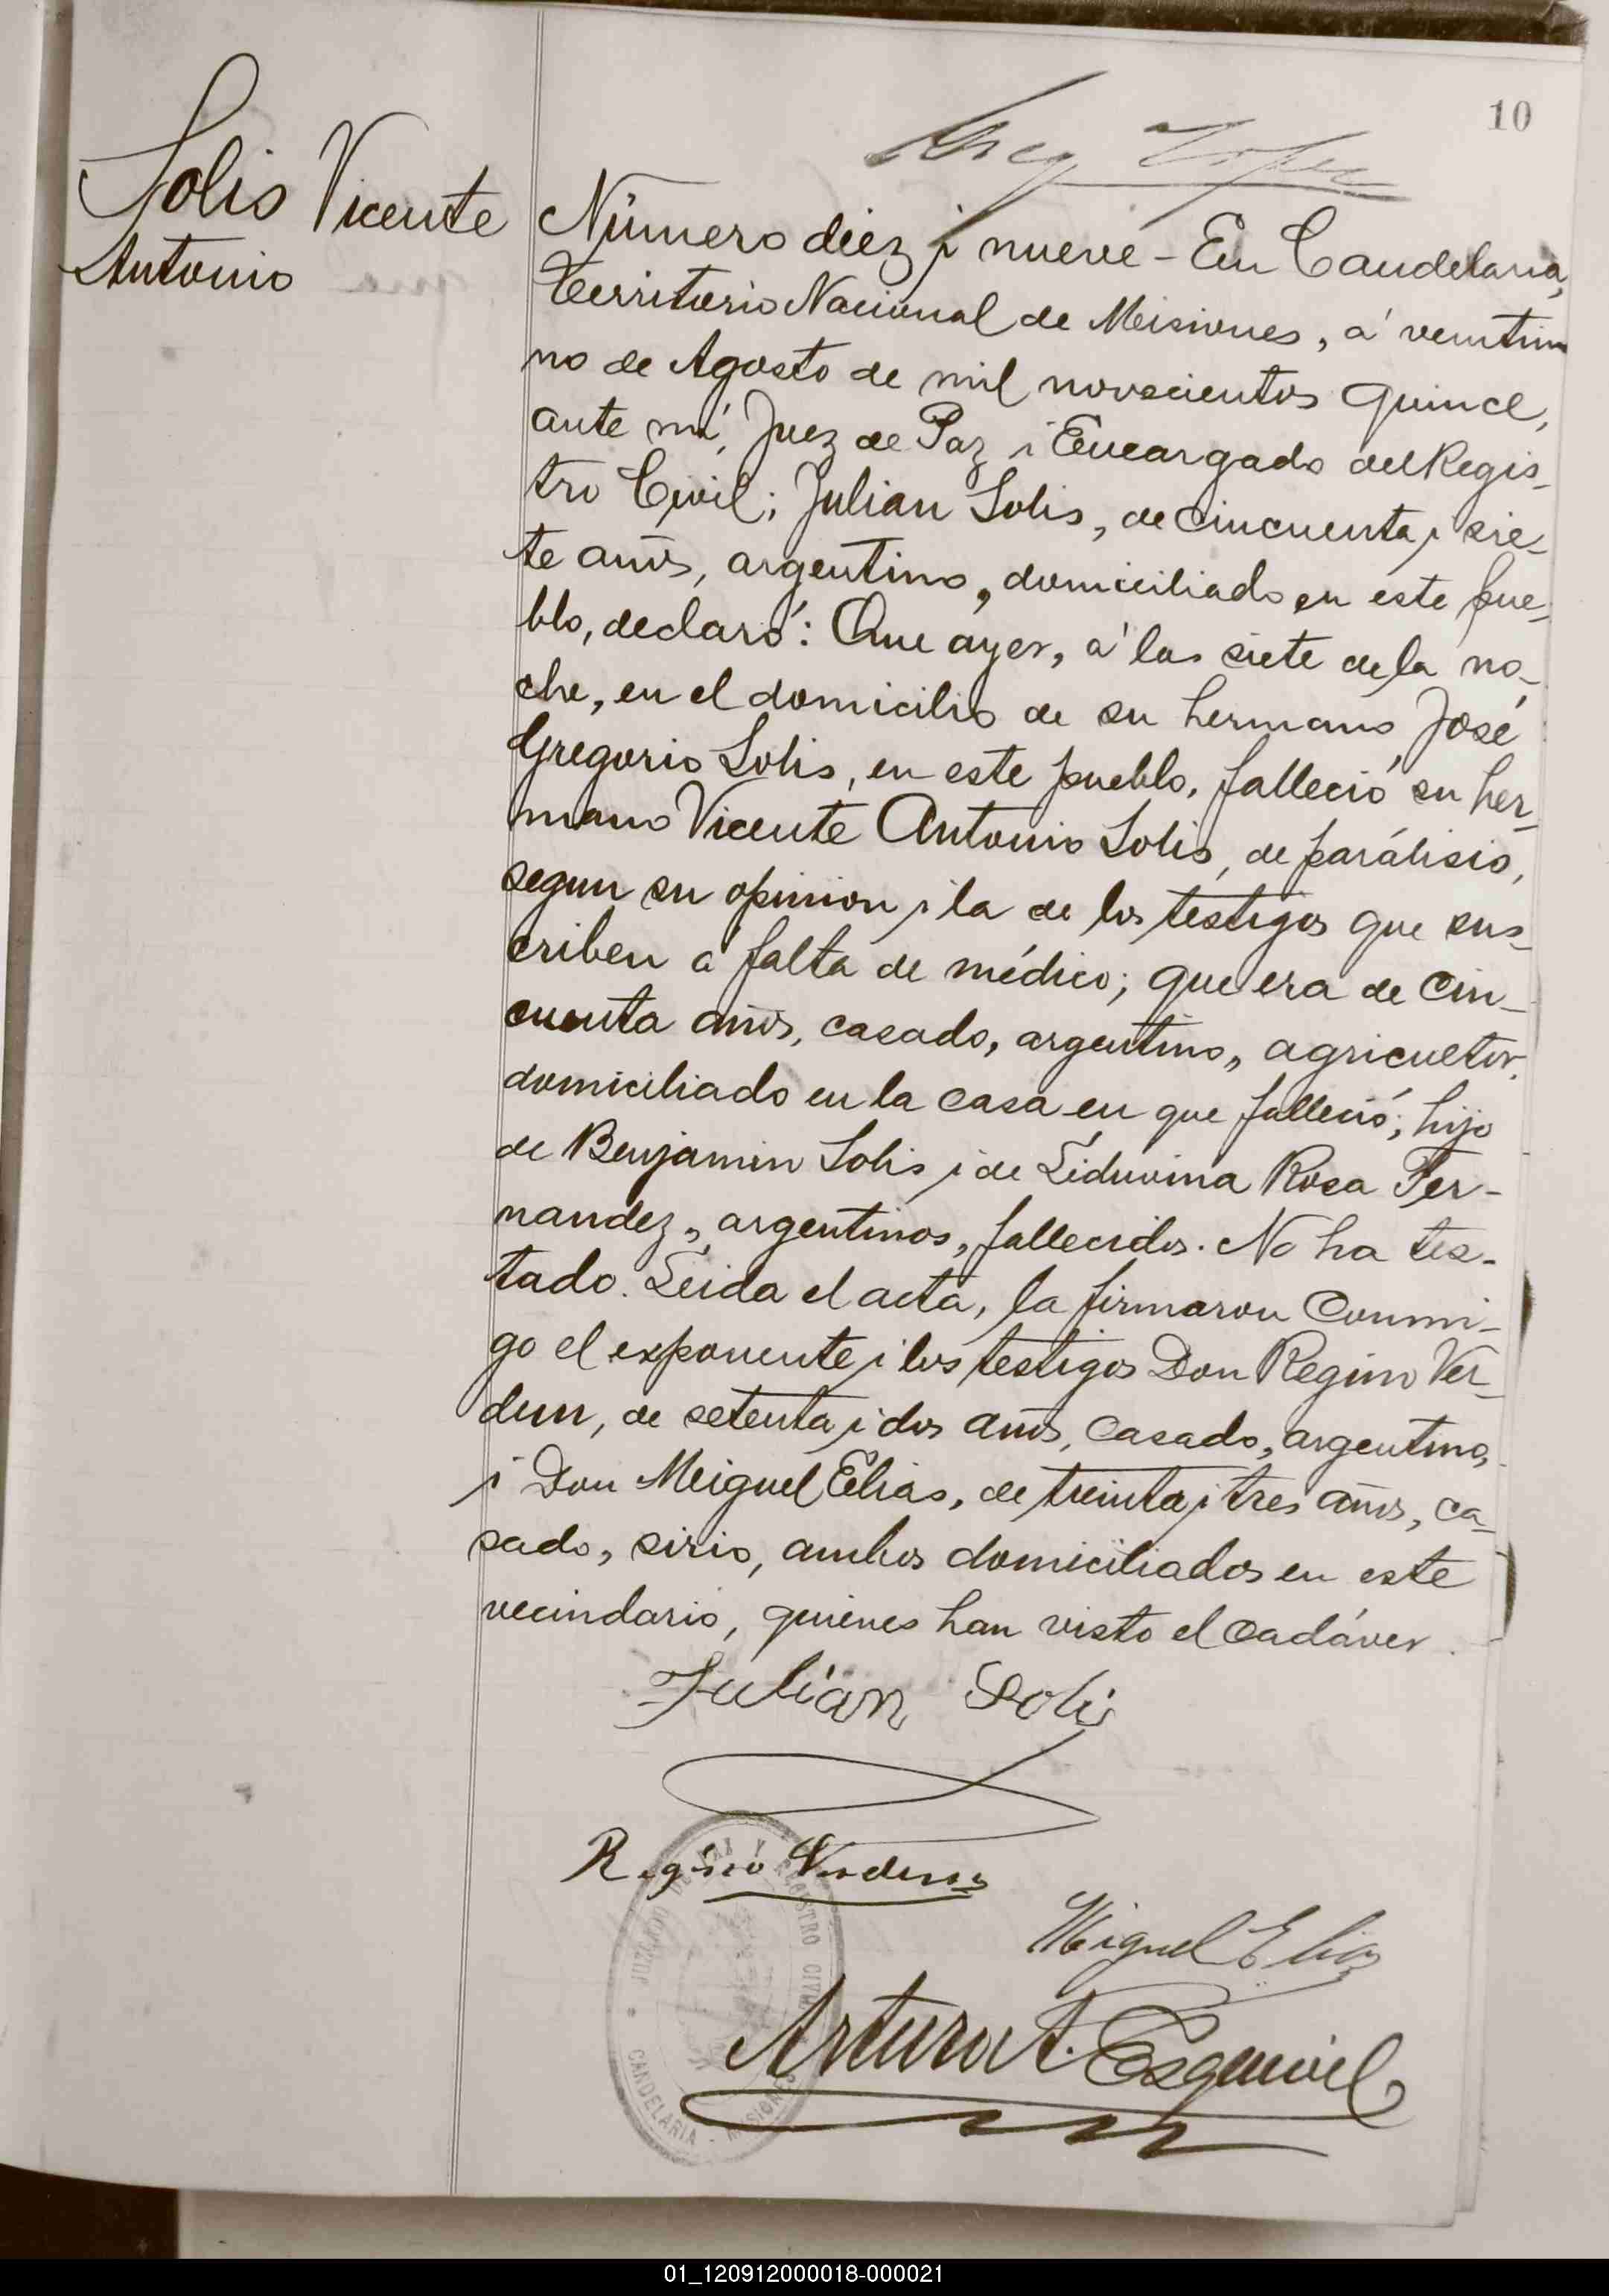 10
Solis Vicente
Antonio
Número diez i nueve - En Candelaria,
Territorio Nacional de Misiones, á veintiu
no de Agosto de mil novecientos quince,
ante mí, Juez de Paz i Encargado del Regis-
tro Civil; Julian Solis, de cincuenta i sie-
te años, argentino, domiciliado en este pue-
blo, declaró: Que ayer, á las siete de la no-
che, en el domicilio de su hermano José
Gregorio Solis, en este pueblo, falleció su her-
mano Vicente Antonio Solis, de parálisis,
segun su opinion i la de los testigos que sus-
criben á falta de médico; que era de cin-
cuenta años, casado, argentino, agricultor,
domiciliado en la casa en que falleció; hijo
de Benjamin Solis i de Liduvina Rosa Fer-
nandez, argentinos, fallecidos. No ha tes-
tado. Leida el acta, la firmaron conmi-
go el exponente i los testigos Don Regino Ver-
dun, de setenta i dos años, casado, argentino,
i Don Miguel Elias, de treinta i tres años, ca-
sado, sirio, ambos domiciliados en este
vecindario, quienes han visto el cadáver.
Julián Solis
Regino Verdun
Miguel Elias
Arturo A. Esquivel
JUZGADO DE PAZ Y REGISTRO CIVIL
CANDELARIA - MISIONES
01_120912000018-000021